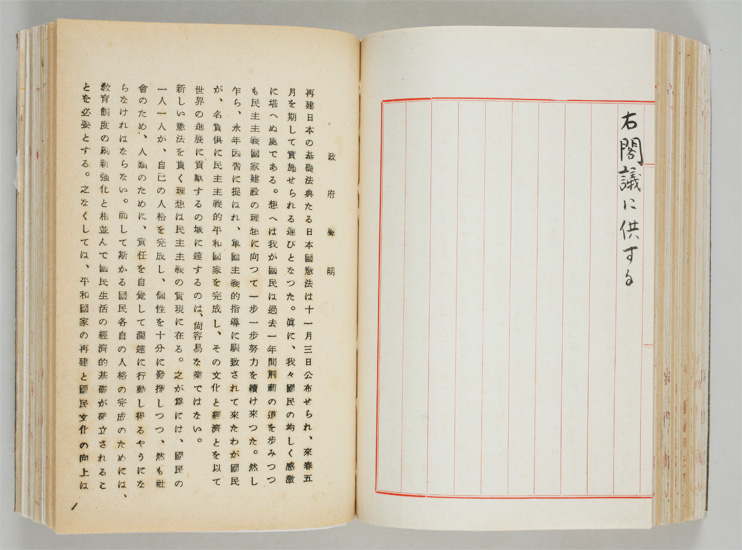 右閣議に供する
政府声明
再建日本の基礎法典たる日本國憲法は十一月三日公布せられ、來春五
月を期して實施せられる運びとなつた。眞に、我々國民の均しく感激
に堪へぬ処である。想へば我が國民は過去一年間荊莿の道を歩みつつ
も民主主義國家建設の理想に向つて一歩一歩努力を續け來つた。然し
乍ら、永年因習に捉はれ、軍國主義的指導に馴致されて來たわが國民
が、名實倶に民主主義的平和國家を完成し、その文化と經濟とを以て
世界の進展に貢献するの域に達するのは、尚容易な業ではない。
新しい憲法を貫く理想は民主主義の實現に在る。之が爲には、國民の
一人一人が、自己の人格を完成し、個性を十分に發揮しつつ、然も社
會のため、人類のために、責任を自覚して濶達に行動し得るやうにな
らなければならない。而して斯かる國民各自の人格の完成のためには、
教育制度の刷新強化と相並んで國民生活の經濟的基礎が確立されるこ
とを必要とする。之なくしては、平和國家の再建と國民文化の向上は
1